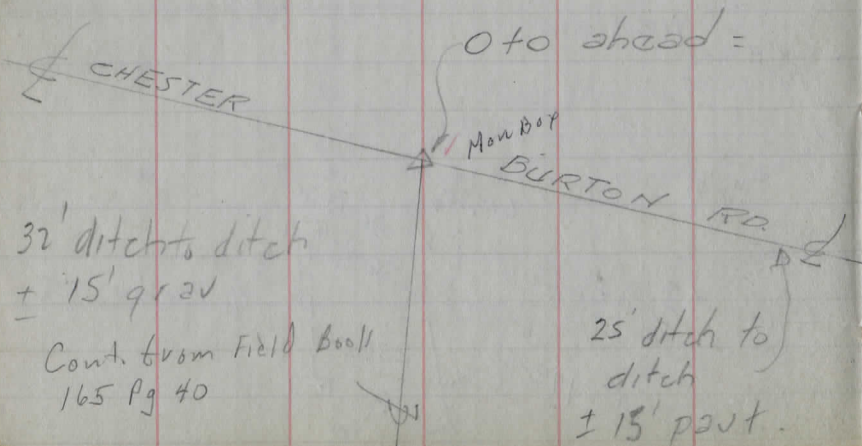 0 to ahead =
℄ CHESTER
Mon Box
BURTON RD.
℄
32' ditch to ditch
± 15' grav
Cont. from Field Book
165 Pg 40
25' ditch to
ditch
± 15' pavt.